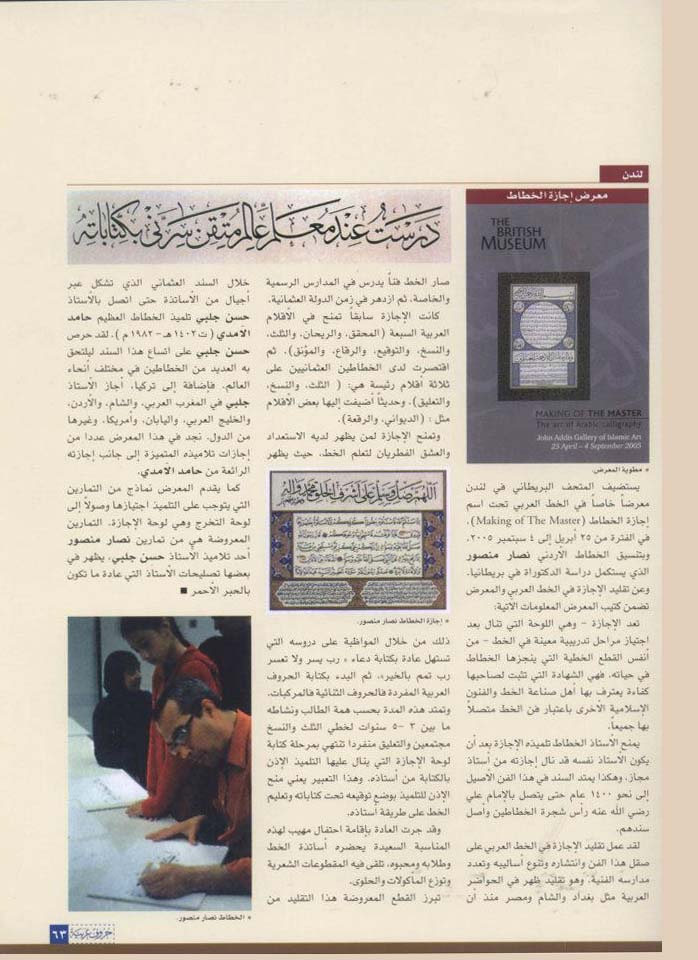 لندن
معرض إجازة الخطاط
THE
BRITISH
MUSEUM
MAKING OF THE MASTER
The art of Arabic calligraphy
John Addis Gallery of Islamic Art
23 April – 4 September 2005
* مطوية المعرض.
درست عند معلم عالم متقن سرني بكتاباته
يستضيف المتحف البريطاني في لندن
معرضاً خاصاً في الخط العربي تحت اسم
إجازة الخطاط (Making of The Master)،
في الفترة من ٢٥ أبريل إلى ٤ سبتمبر ٢٠٠٥،
وبتنسيق الخطاط الأردني نصار منصور
الذي يستكمل دراسة الدكتوراة في بريطانيا.
وعن تقليد الإجازة في الخط العربي والمعرض
تضمن كتيب المعرض المعلومات الاتية:
تعد الإجازة - وهي اللوحة التي تنال بعد
اجتياز مراحل تدريبية معينة في الخط - من
أنفس القطع الخطية التي ينجزها الخطاط
في حياته، فهي الشهادة التي تثبت لصاحبها
كفاءة يعترف بها أهل صناعة الخط والفنون
الإسلامية الأخرى بأعتبار فن الخط متصلاً
بها جميعاً.
يمنح الأستاذ الخطاط تلميذه الإجازة بعد أن
يكون الأستاذ نفسه قد نال إجازته من أستاذ
مجاز، وهكذا يمتد السند في هذا الفن الأصيل
إلى نحو ١٤٠٠ عام حتى يتصل بالإمام علي
رضي الله عنه رأس شجرة الخطاطين وأصل
سندهم.
لقد عمل تقليد الإجازة في الخط العربي على
صقل هذا الفن وانتشاره وتنوع أساليبه وتعدد
مدارسه الفنية. وهو تقليد ظهر في الحواضر
العربية مثل بغداد والشام ومصر منذ ان
صار الخط فناً يدرس في المدارس الرسمية
والخاصة، ثم ازدهر في زمن الدولة العثمانية.
كانت الإجازة سابقاً تمنح في الأقلام
العربية السبعة (المحقق، والريحان، والثلث،
والنسخ، والتوقيع، والرقاع، والمؤنق). ثم
اقتصرت لدى الخطاطين العثمانيين على
ثلاثة اقلام رئيسة هي: ( الثلث، والنسخ،
والتعليق). وحديثاً أضيفت إليها بعض الأقلام
مثل : (الديواني، والرقعة).
وتمنح الإجازة لمن يظهر لديه الاستعداد
والعشق الفطريان لتعلم الخط، حيث يظهر
اللهم صل وسلم على أشرف الخلق محمد وآله
* إجازة الخطاط نصار منصور.
ذلك، من خلال المواظبة على دروسه التي
تستهل عادة بكتابة دعاء « رب يسر ولا تعسر
رب تمم بالخير»، ثم البدء بكتابة الحروف
العربية المفردة فالحروف الثنائية فالمركبات.
وتمتد هذه المدة بحسب همة الطالب ونشاطه
ما بين ٣ -٥ سنوات لخطي الثلث والنسخ
مجتمعين والتعليق منفردا تنتهي بمرحلة كتابة
لوحة الإجازة التي ينال عليها التلميذ الإذن
بالكتابة من أستاذه. وهذا التعبير يعني منح
الإذن للتلميذ بوضع توقيعه تحت كتاباته وتعليم
الخط على طريقة أستاذه.
وقد جرت العادة بإقامة احتفال مهيب لهذه
المناسبة السعيدة يحضره أساتذة الخط
وطلابه ومحبوه، تلقى فيه المقطوعات الشعرية
وتوزع المأكولات والحلوى.
تبرز القطع المعروضة هذا التقليد من
خلال السند العثماني الذي تشكل عبر
أجيال من الأساتذة حتى اتصل بالأستاذ
حسن جلبي تلميذ الخطاط العظيم حامد
الآمدي ( ت ١٤٠٢ هـ - ١٩٨٢ م ). لقد حرص
حسن جلبي على اتساع هذا السند ليلتحق
به العديد من الخطاطين في مختلف أنحاء
العالم. فإضافة إلى تركيا، أجاز الاستاذ
جلبي في المغرب العربي، والشام، والأردن،
والخليج العربي، واليابان، وأمريكا، وغيرها
من الدول. نجد في هذا المعرض عددا من
إجازات تلاميذه المتميزة إلى جانب إجازته
الرائعة من حامد الآمدي.
كما يقدم المعرض نماذج من التمارين
التي يتوجب على التلميذ اجتيازها وصولاً إلى
لوحة التخرج وهي لوحة الإجازة. التمارين
المعروضة هي من تمارين نصار منصور
أحد تلاميذ الاستاذ حسن جلبي، يظهر في
بعضها تصليحات الأستاذ التي عادة ما تكون
بالحبر الأحمر ■
* الخطاط نصار منصور.
حروف عربية
٦٣